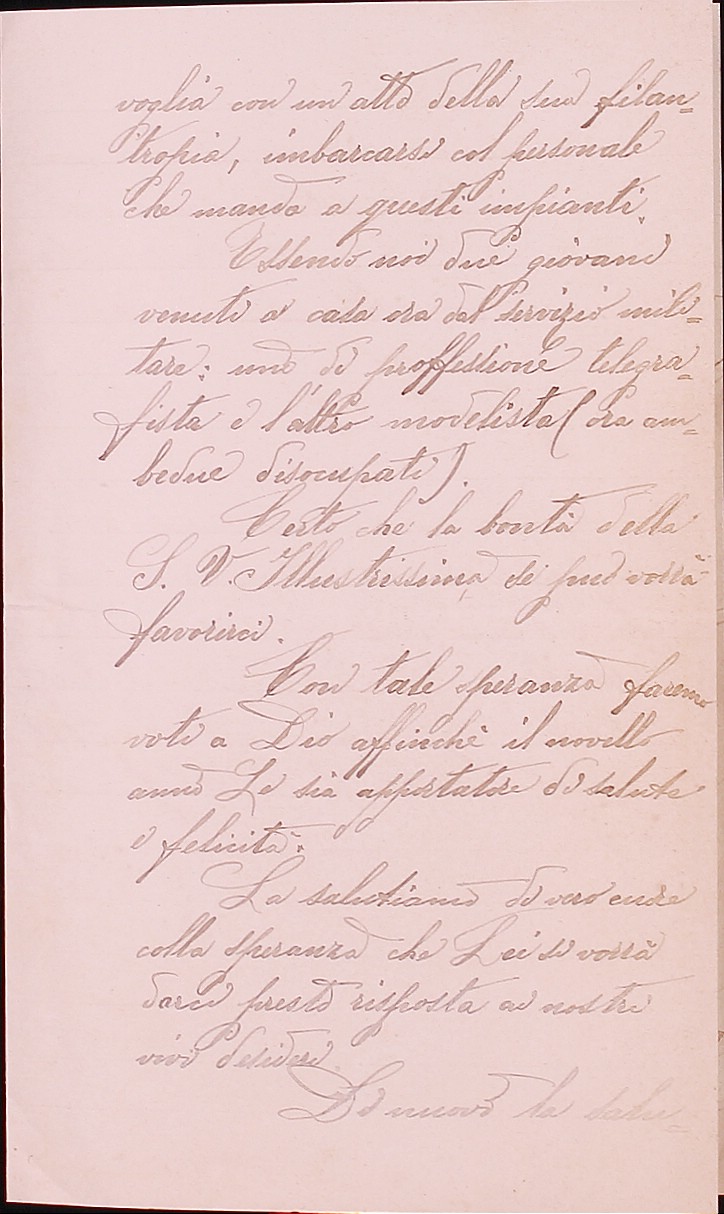 voglia con un atto della sua filan=
tropia, imbarcarsi col personale
che manda a questi impianti.
Essendo noi due giovani
venuti a casa ora dal servizio mili=
tare: uno di proffessione telegra=
fista e l'altro modelista (ora am=
bedue disocupati).
Certo che la bontà della
S. V. Illustrissima se può vorrà
favorirci.
Con tale speranza faremo
voti a Dio affinchè il novello
anno Le sia apportatore di salute
e felicità.
La salutiamo di vero cuore
colla speranza che Lei si vorrà
darci presto risposta ai nostri
vivi desideri
Di nuovo la salu=